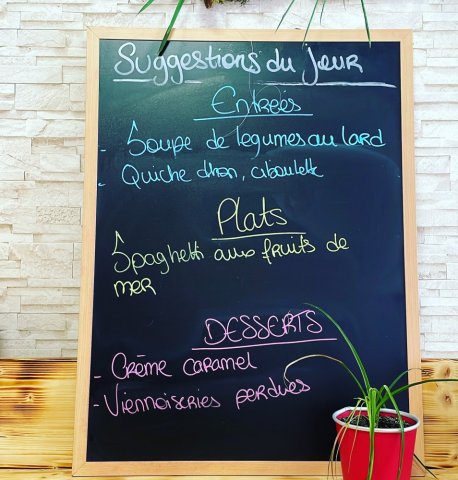 Suggestions du Jour
Entrées
- Soupe de legumes au lard
- Quiche thon, ciboulette
Plats
Spaghetti aux fruits de
mer
DESSERTS
- Crème caramel
- Viennoiseries perdues